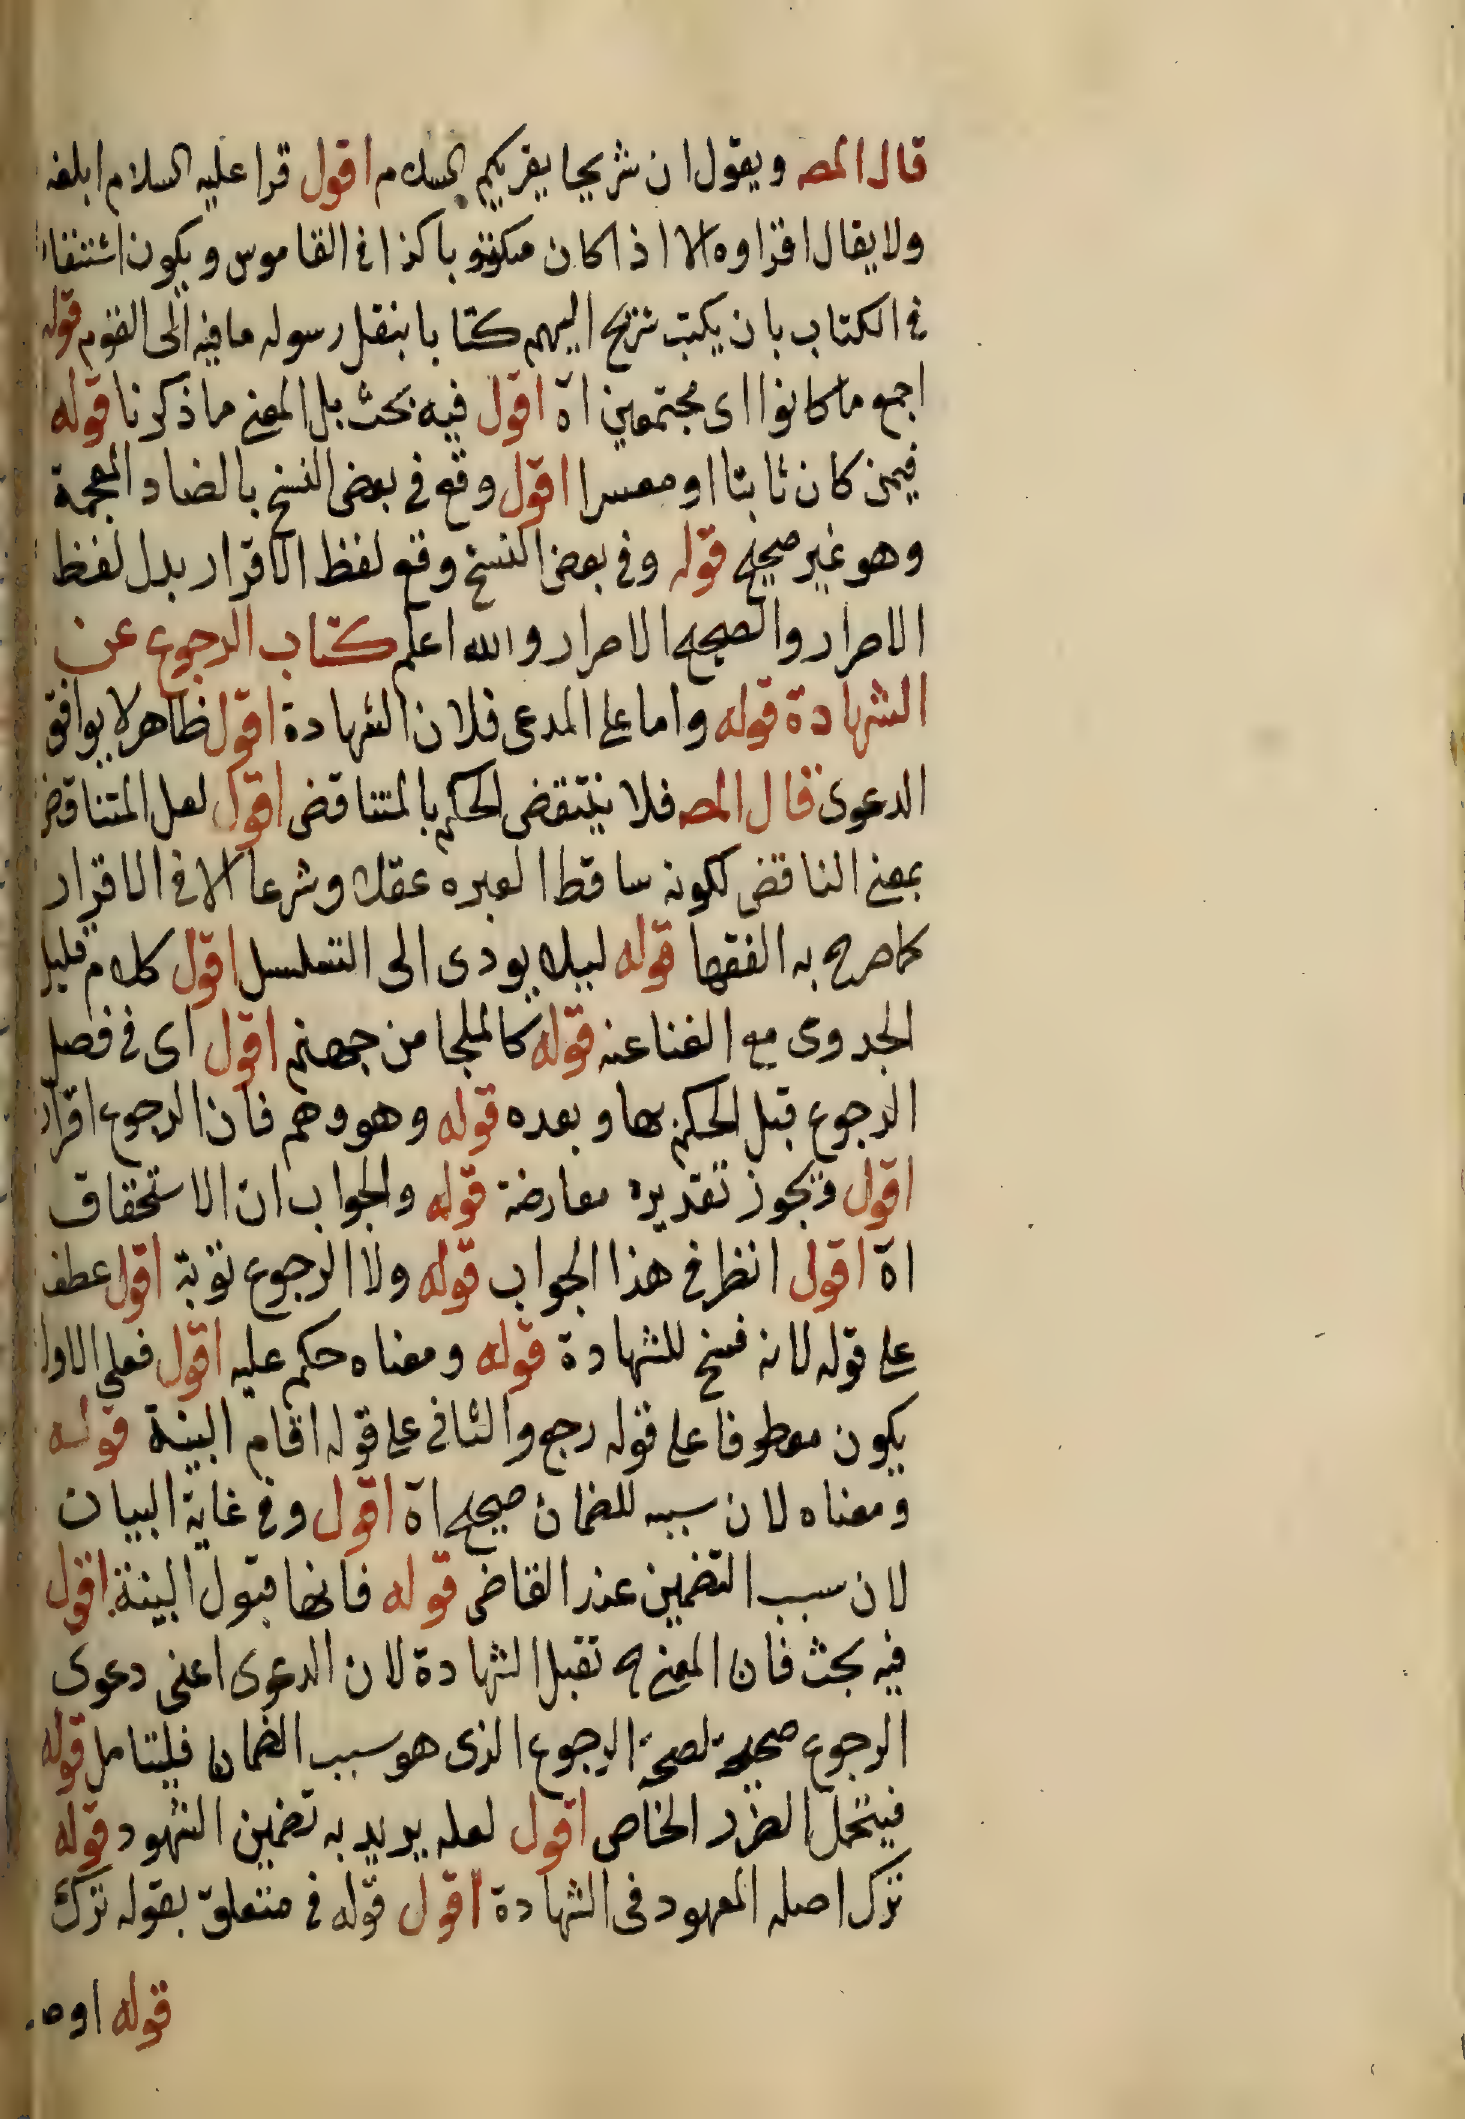 قال المصـ ويقول ان شريحا يقريكم السلام اقول قرا عليه السلام ابلغه
ولا يقال اقراوه الا اذا كان مكتوبا كذا في القاموس ويكون
في الكتاب بان يكتب شريح اليهم كتابا بنقل رسوله ما فيه الى القوم قوله
اجمع ما كانوا اى مجتمعين اه اقول فيه بحث بل المعنى ما ذكرنا قوله
فيمن كان ثابتا او مصرا اقول وقع في بعض النسخ بالضاد المعجمة
وهو غير صحيح قوله وفي بعض النسخ وقع لفظ الاقرار بدل لفظ
الاصرار والصحيح الاصرار والله اعلم كتاب الرجوع عن
الشهادة قوله واما على المدعى فلان الشهادة اقول ظاهر لا يوافق
الدعوى قال المصـ فلا ينتقض الحكم بالمتناقض اقول لعل المتناقض
بمعنى التناقض ككونه ساقط العبره عقلا وشرعا الا في الاقرار
كما صرح به الفقها قوله ليلا يودى الى التسلسل اقول كلام قليل
الجدوى مع الغنا عنه قوله كالملجا من جهتهم اقول اى في فصل
الرجوع قبل الحكم بها وبعده قوله وهو وهم فان الرجوع اقرار
اقول فيجوز تقديره معارضة قوله والجواب ان الاستحقاق
اه اقول انظر في هذا الجواب قوله ولا الرجوع توبة اقول عطف
على قوله لانه فسخ للشهادة قوله ومعناه حكم عليه اقول فعلى الاول
يكون معطوفا على قوله رجع والثاني على قوله اقام البينة قوله
ومعناه لان سببه للضمان صحيح اه اقول وفي غاية البيان
لان سبب التضمين عذر القاضى قوله فانها قبول البينة اقول
فيه بحث فان المعنى تقبل الشهادة لان الدعوى اعنى دعوى
الرجوع صحيحة لصحة الرجوع الذى هو سبب الضمان فليتامل قوله
فيتحمل الضرر الخاص اقول لعله يريد به تضمين الشهود قوله
ترك اصله المعهود في الشهادة اقول قوله في متعلق بقوله ترك
قوله اوصـ